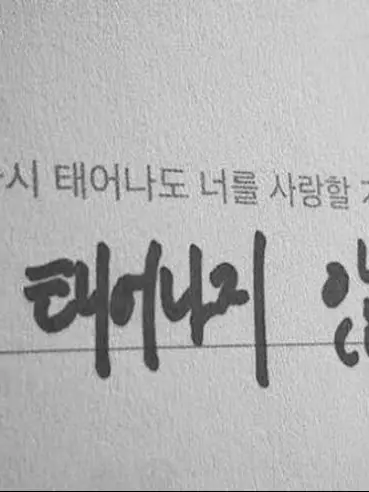 시 태어나도 너를 사랑할
태어나지